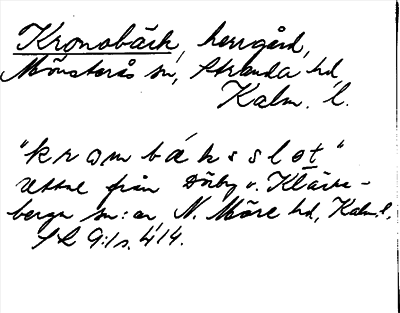 Kronobäck, herrgård,
Mönsterås sn, Stranda hd,
Kalm. l.
"krombäksslot"
Uttal från Döby v. Kläcke-
berga sn: av N. Möre hd, Kalm. l.
SL 9:1 s. 414.